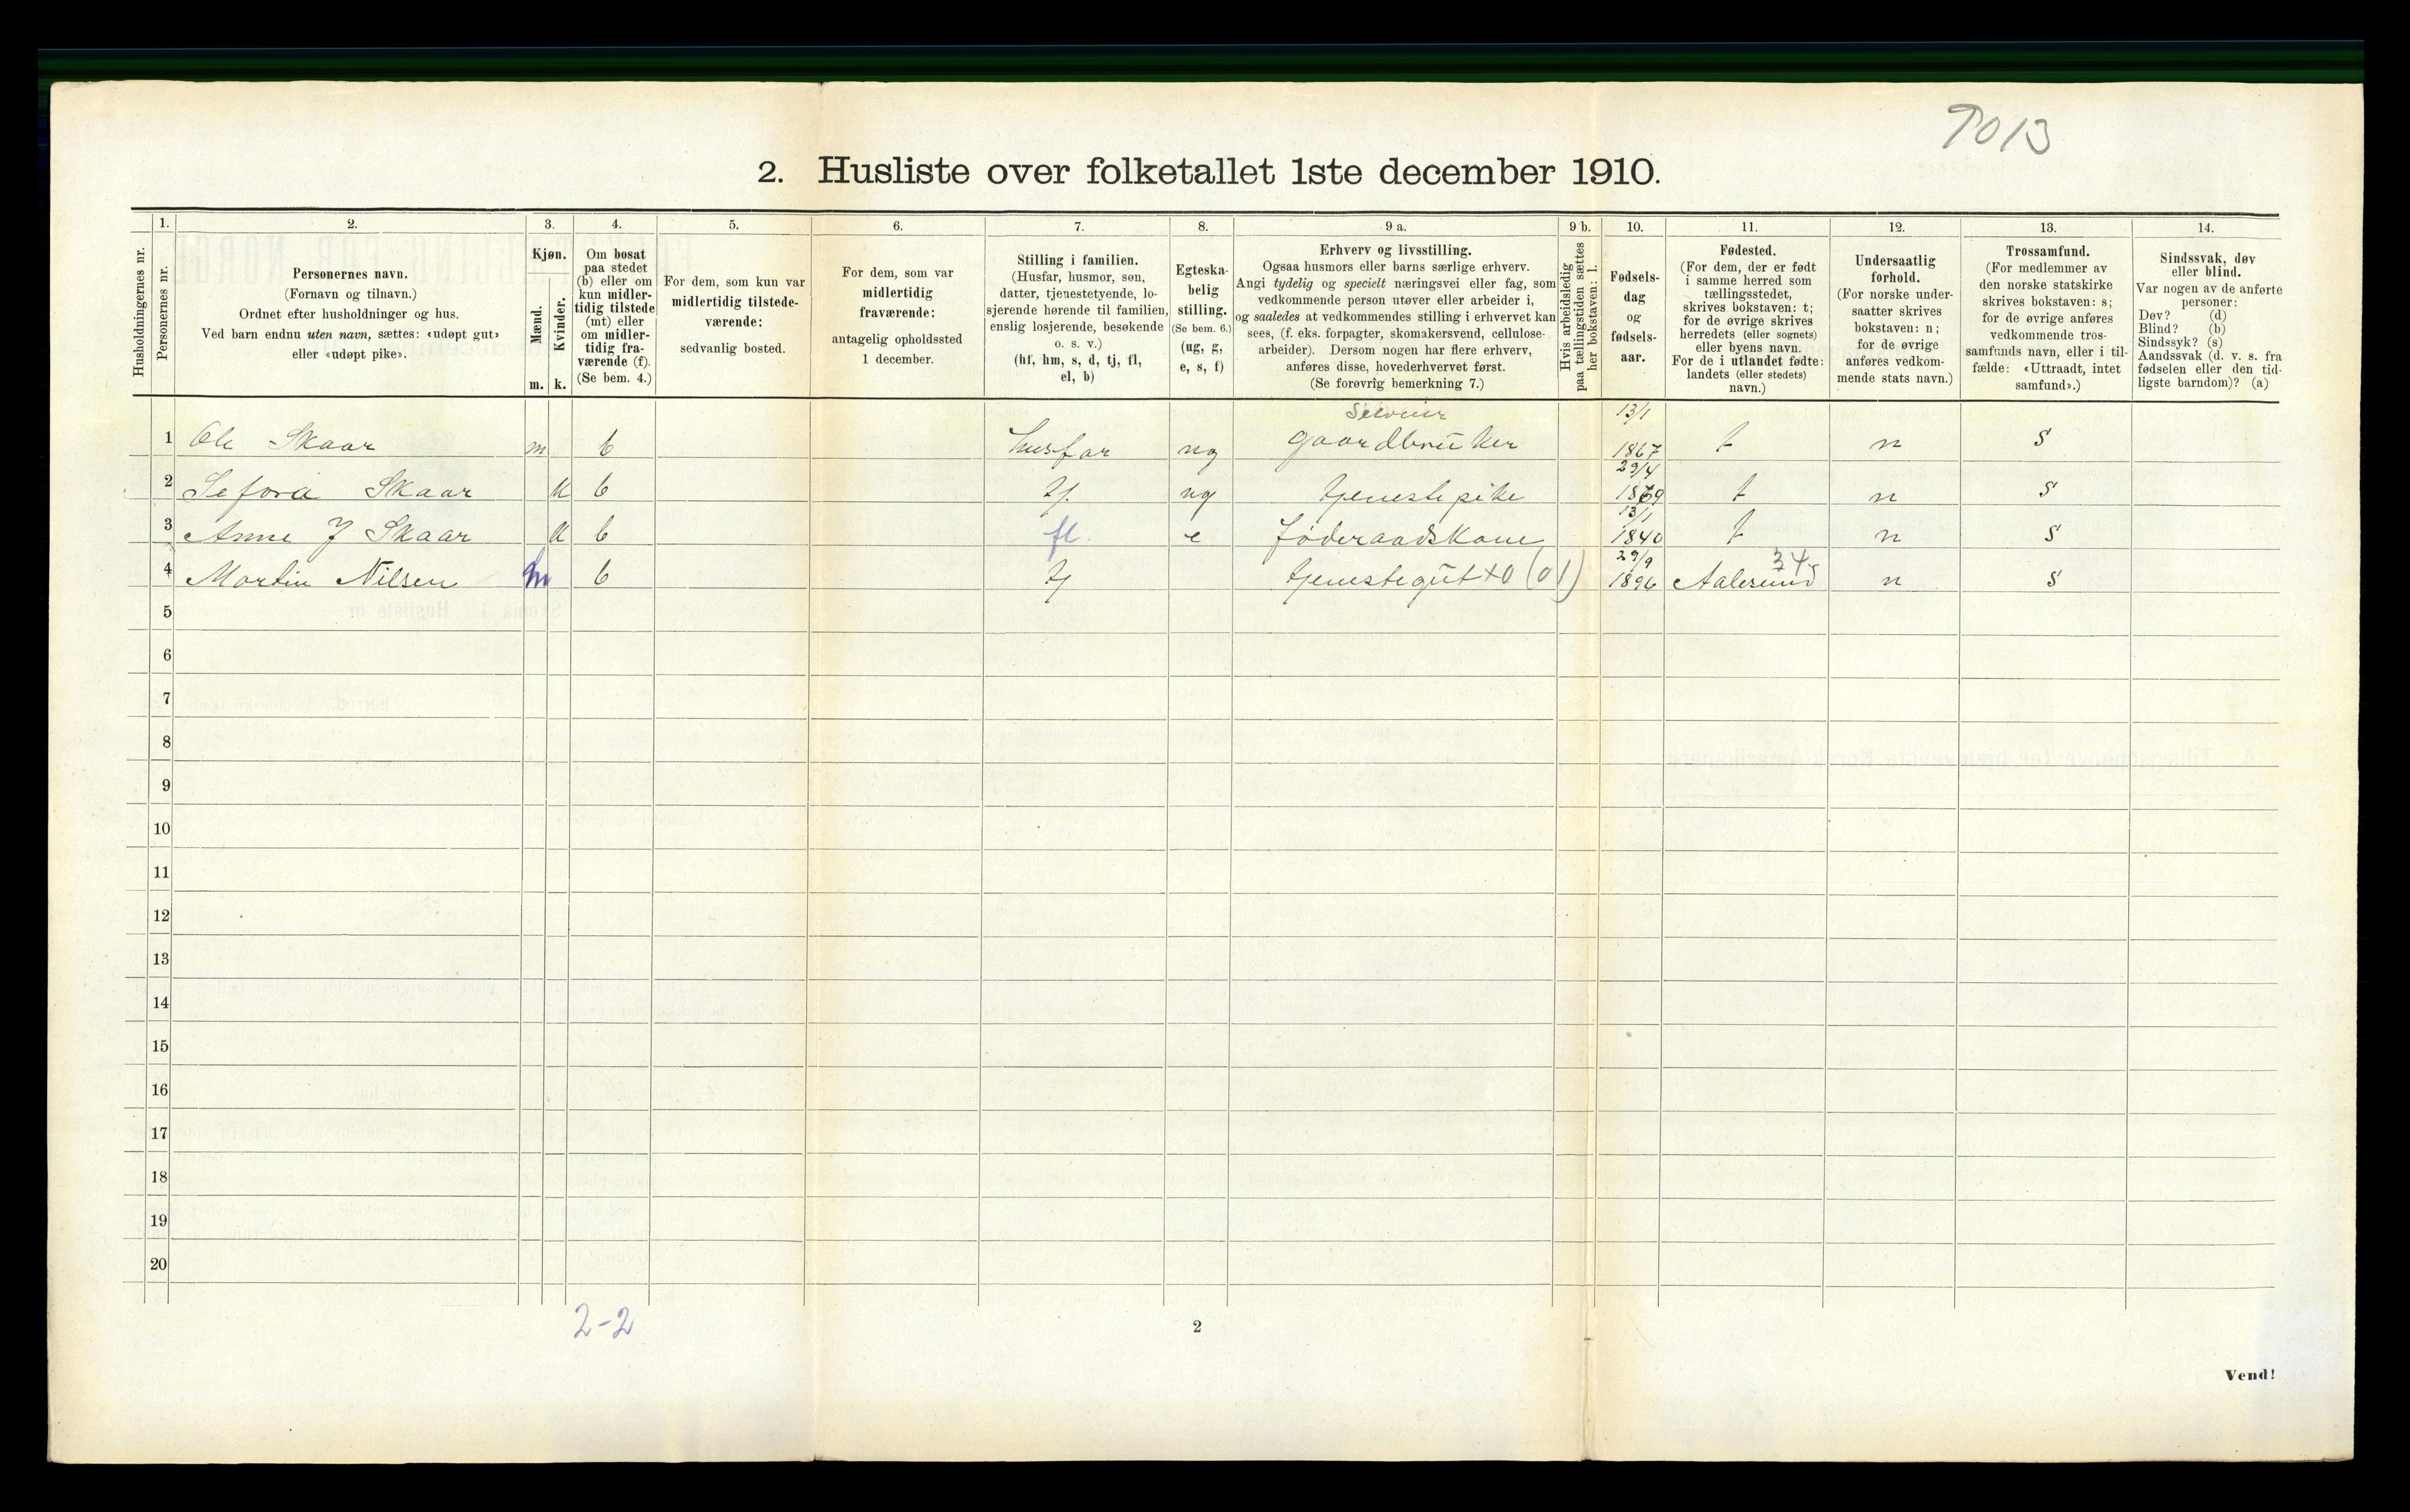 7013
2. Husliste over folketallet 1ste december 1910.
Husholdningernes nr.
1.
Personernes nr.
2.
Personernes navn.
(Fornavn og tilnavn.)
Ordnet efter husholdninger og hus.
Ved barn endnu uten navn, sættes: «udøpt gut»
eller «udøpt pike».
3.
Kjøn.
Mænd.
Kvinder.
m. k.
4.
Om bosat
paa stedet
(b) eller om
kun midler-
tidig tilstede
(mt) eller
om midler-
tidig fra-
værende (f).
(Se bem. 4.)
5.
For dem, som kun var
midlertidig tilstede-
værende:
sedvanlig bosted.
6.
For dem, som var
midlertidig
fraværende:
antagelig opholdssted
1 december.
7.
Stilling i familien.
(Husfar, husmor, søn,
datter, tjenestetyende, lo-
sjerende hørende til familien,
enslig losjerende, besøkende
o. s. v.)
(hf, hm, s, d, tj, fl,
el, b)
8.
Egteska-
belig
stilling.
(Se bem. 6.)
(ug, g,
e, s, f)
9 a.
Erhverv og livsstilling.
Ogsaa husmors eller barns særlige erhverv.
Angi tydelig og specielt næringsvei eller fag, som
vedkommende person utøver eller arbeider i,
og saaledes at vedkommendes stilling i erhvervet kan
sees, (f. eks. forpagter, skomakersvend, cellulose-
arbeider). Dersom nogen har flere erhverv,
anføres disse, hovederhvervet først.
(Se forøvrig bemerkning 7.)
9 b.
Hvis arbeidsledig
paa tællingstiden sættes
her bokstaven: l.
10.
Fødsels-
dag
og
fødsels-
aar.
11.
Fødested.
(For dem, der er født
i samme herred som
tællingsstedet,
skrives bokstaven: t;
for de øvrige skrives
herredets (eller sognets)
eller byens navn.
For de i utlandet fødte:
landets (eller stedets)
navn.)
12.
Undersaatlig
forhold.
(For norske under-
saatter skrives
bokstaven: n;
for de øvrige
anføres vedkom-
mende stats navn.)
13.
Trossamfund.
(For medlemmer av
den norske statskirke
skrives bokstaven: s;
for de øvrige anføres
vedkommende tros-
samfunds navn, eller i til-
fælde: «Uttraadt, intet
samfund».)
14.
Sindssvak, døv
eller blind.
Var nogen av de anførte
personer:
Døv? (d)
Blind? (b)
Sindssyk? (s)
Aandssvak (d. v. s. fra
fødselen eller den tid-
ligste barndom)? (a)
Seloeier 13/1
1 Ole Skaar m b husfar ug gaardbruker 1867 t n s
29/4
2 Sefora Skaar k b tj. ug tjenestepike 1869 t n s
13/1
3 Anne J Skaar k b fl. e føderaadskone 1840 t n s
29/9 34
4 Martin Nilsen m b tj tjenestegut x0 (01) 1896 Aalesund n s
5
6
7
8
9
10
11
12
13
14
15
16
17
18
19
20
2-2
2
Vend!